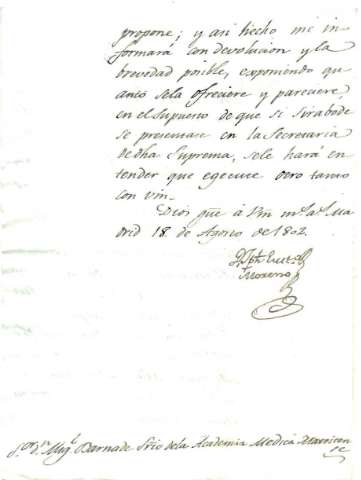 propone; y asi hecho me in
formará con devolucion y la
brevedad posible, exponiendo qu
anto sela ofreciere y pareciere,
en el supuesto de que si Strabode
se presentase en la Secretaria
de dha Suprema, sele hará en
tender que egecute otro tanto
con vm.
Dios gue á Vm ms as. Ma
drid 18 de Agosto de 1802.
Moreno
S.or Dn Migl Barnade Srio dela Academia Medica Matriten
se